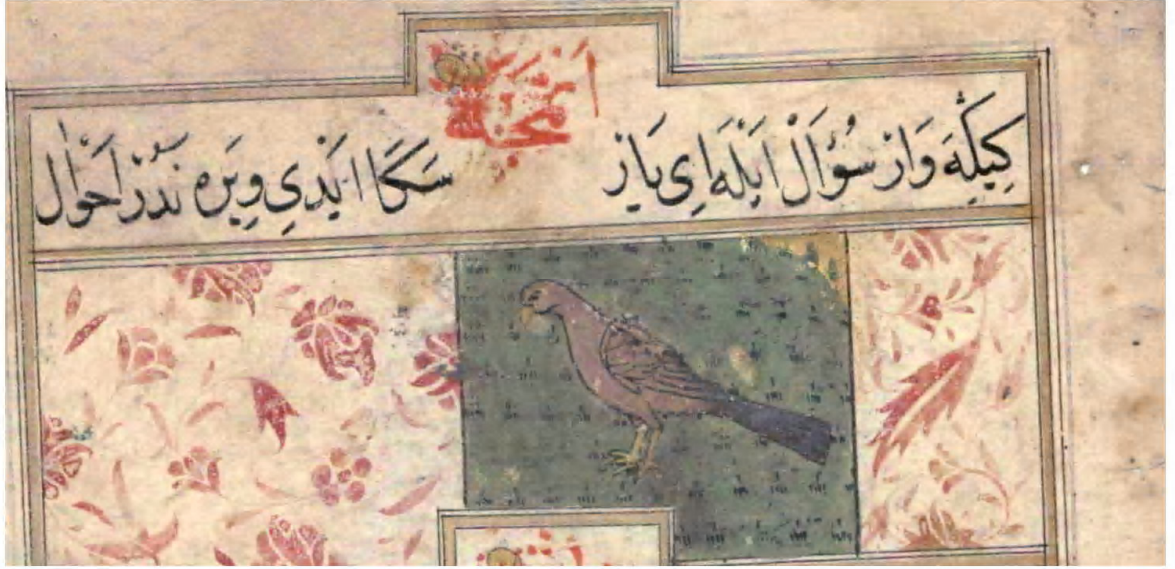 كيكله وَارْ سُؤَالْ اَيْلَه اِي يَارْ
سَكَا اَيْدِي وِيرَه نَدُرْ اَحْوَالْ